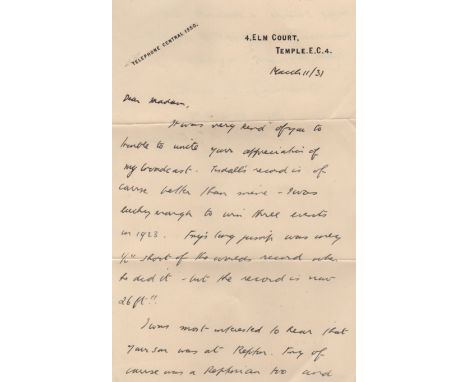 TELEPHONE CENTRAL 1350.
4, ELM COURT,
TEMPLE. E.C.4.
March 11/31
Dear Madam,
It was very kind of you to
trouble to write your appreciation of
my broadcast. Tisdall's record is of
course better than mine - I was
lucky enough to win three events
in 1923. Fry's long jump was only
short of the worlds record when
he did it - but the record is now
26 ft!!
I was most interested to hear that
your son was at Repton. Fry of
course was a Reptonian too and